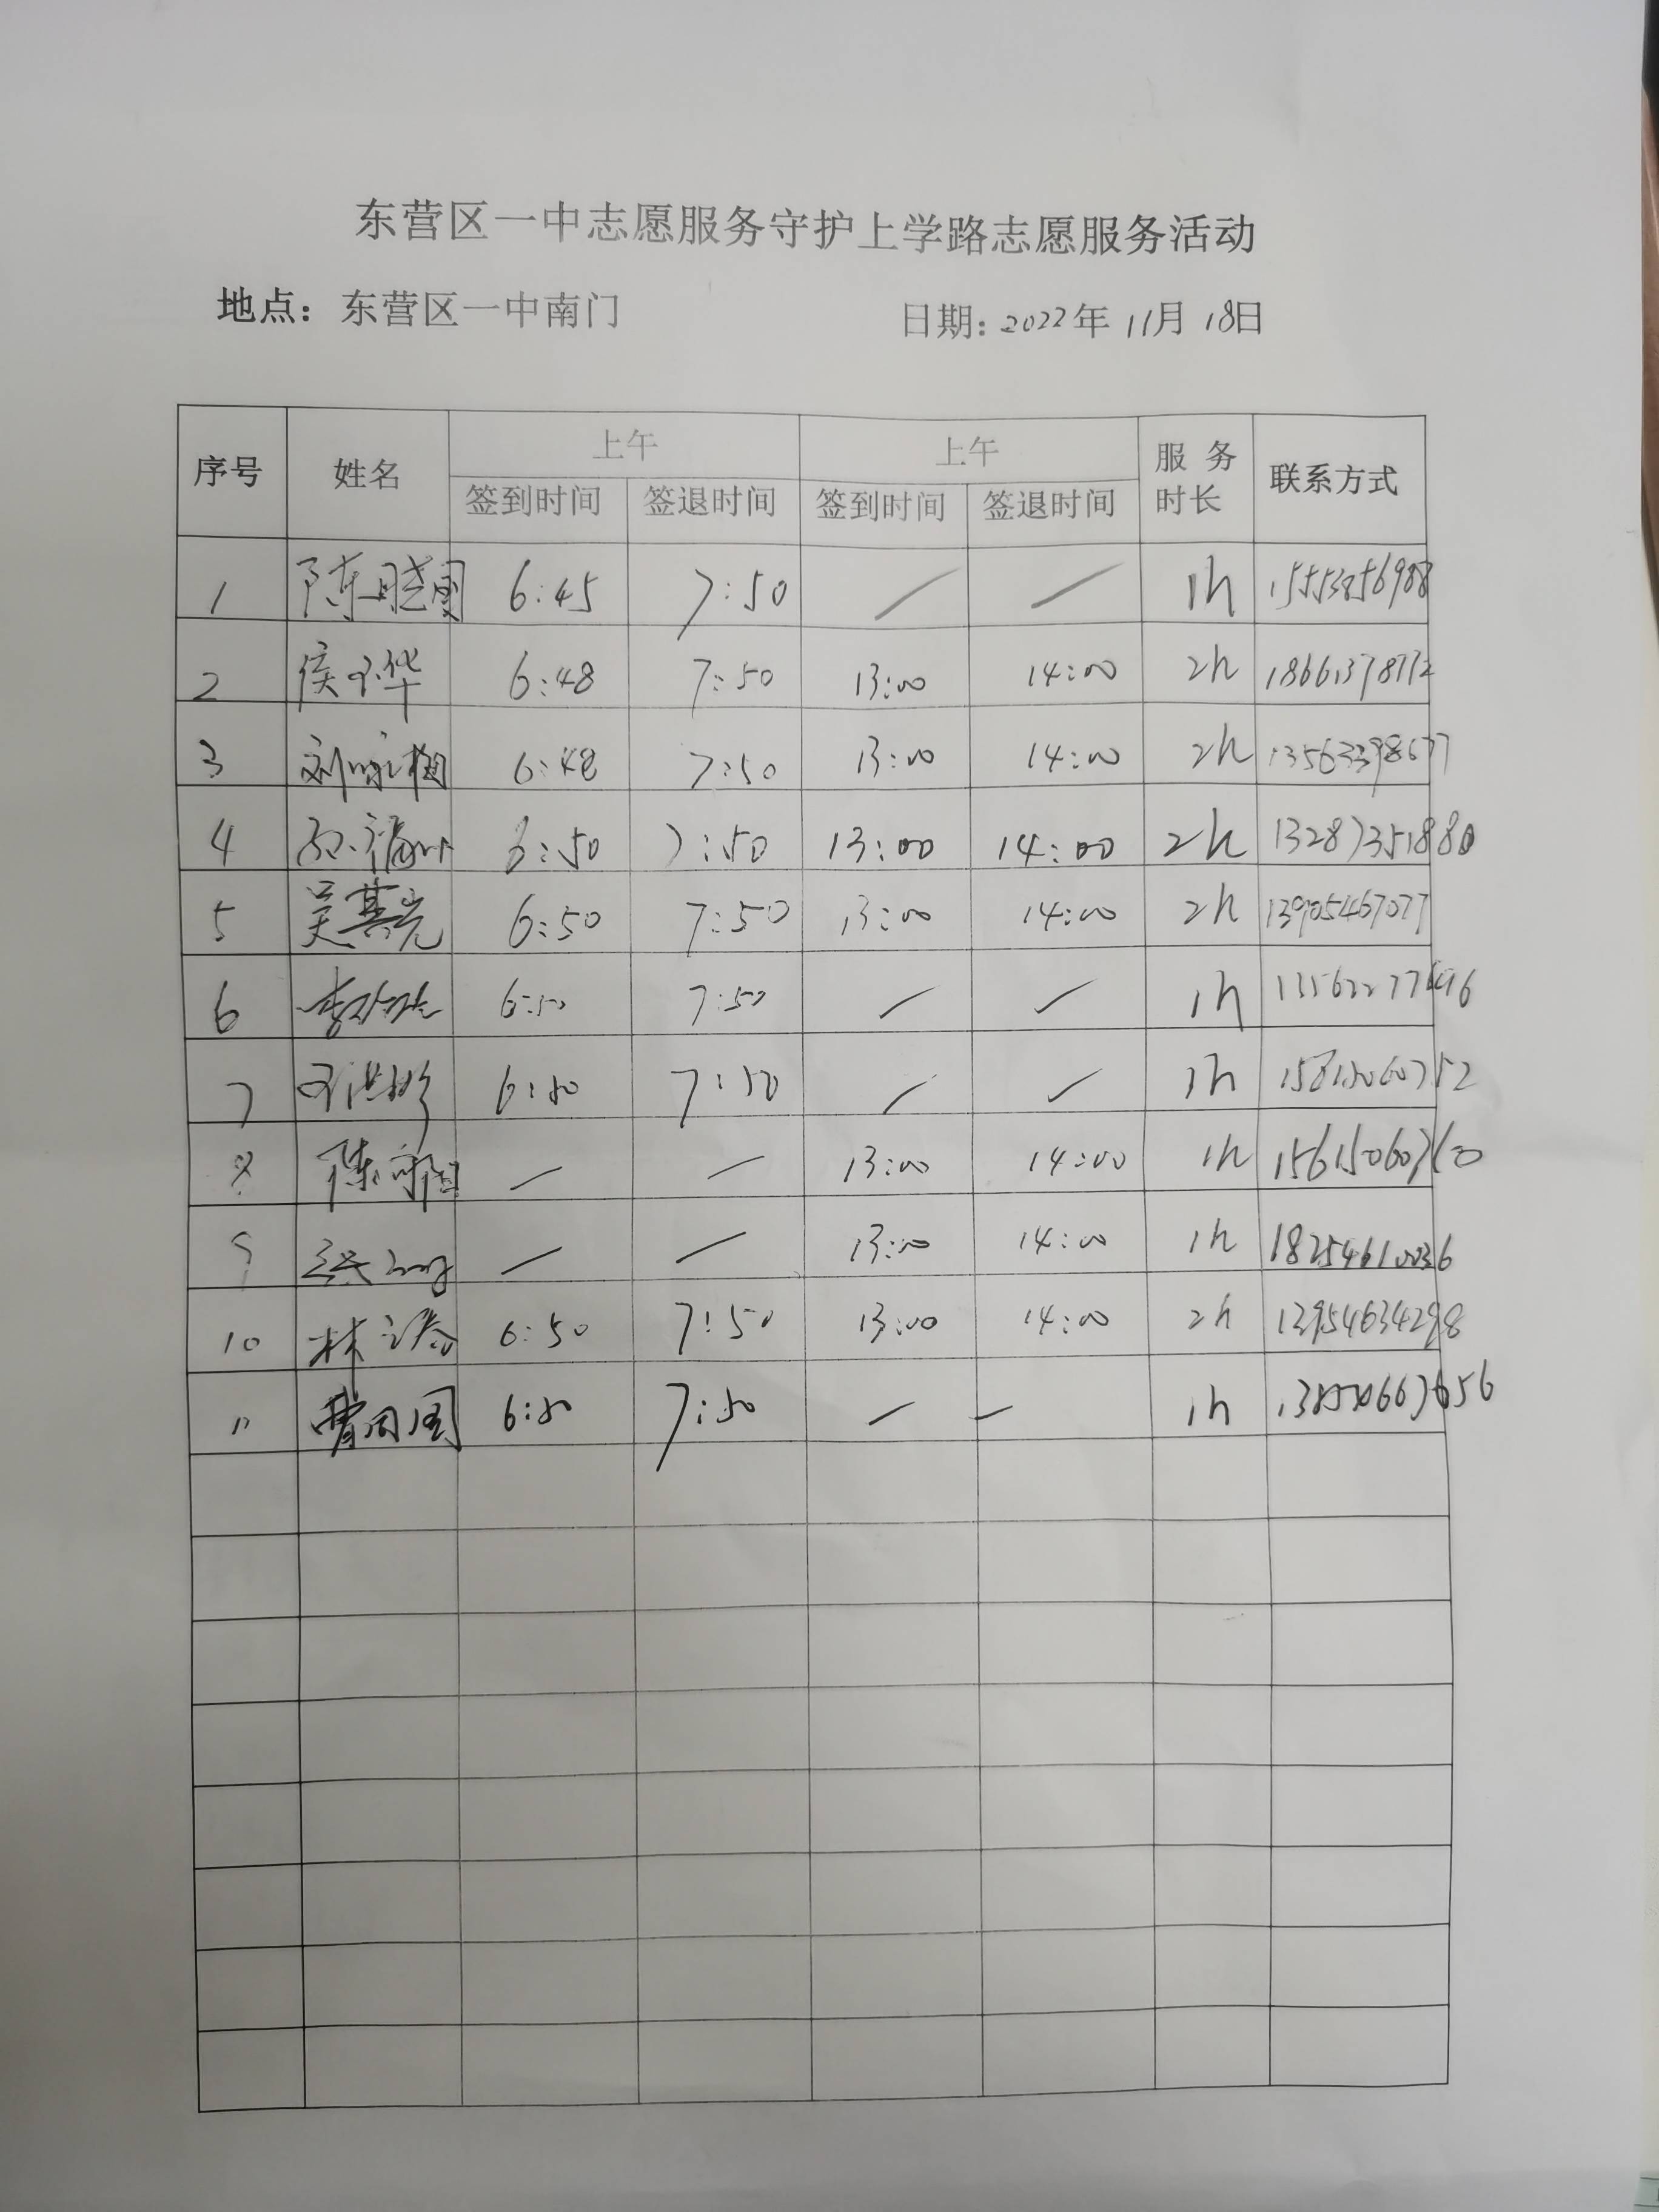 东营区一中志愿服务守护上学路志愿服务活动
地点：东营区一中南门 日期：2022年11月18日
序号 姓名 上午 上午 服务时长 联系方式
签到时间 签退时间 签到时间 签退时间
1 陈晓国 6:45 7:50 / / 1h 15553856988
2 侯 华 6:48 7:50 13:00 14:00 2h 18661378772
3 刘咏梅 6:48 7:50 13:00 14:00 2h 13563398677
4 6:50 7:50 13:00 14:00 2h 13287351880
5 吴其光 6:50 7:50 13:00 14:00 2h 13905467077
6 李 6:50 7:50 / / 1h
7 6:50 7:50 / / 1h
8 陈 — — 13:00 14:00 1h
9 — — 13:00 14:00 1h 18254610036
10 林 6:50 7:50 13:00 14:00 2h 13954634298
11 曹 国 6:50 7:50 — — 1h